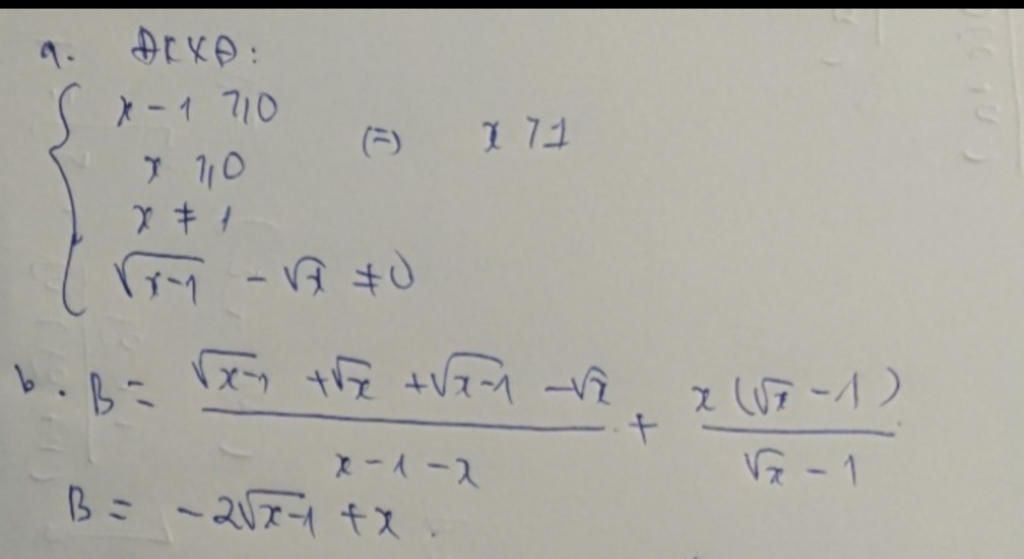 a. ĐKXĐ:
x - 1 ⩾ 0
x ⩾ 0
x ≠ 1
√(x-1) - √x ≠ 0
⇔ x > 1
b. B = (√(x-1) + √x + √(x-1) - √x)/(x - 1 - x) + (x(√x - 1))/(√x - 1)
B = -2√(x-1) + x.